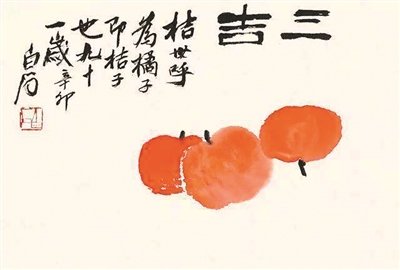 三吉
桔世呼
為橘子
即桔子
也九十
一歲辛卯
白石